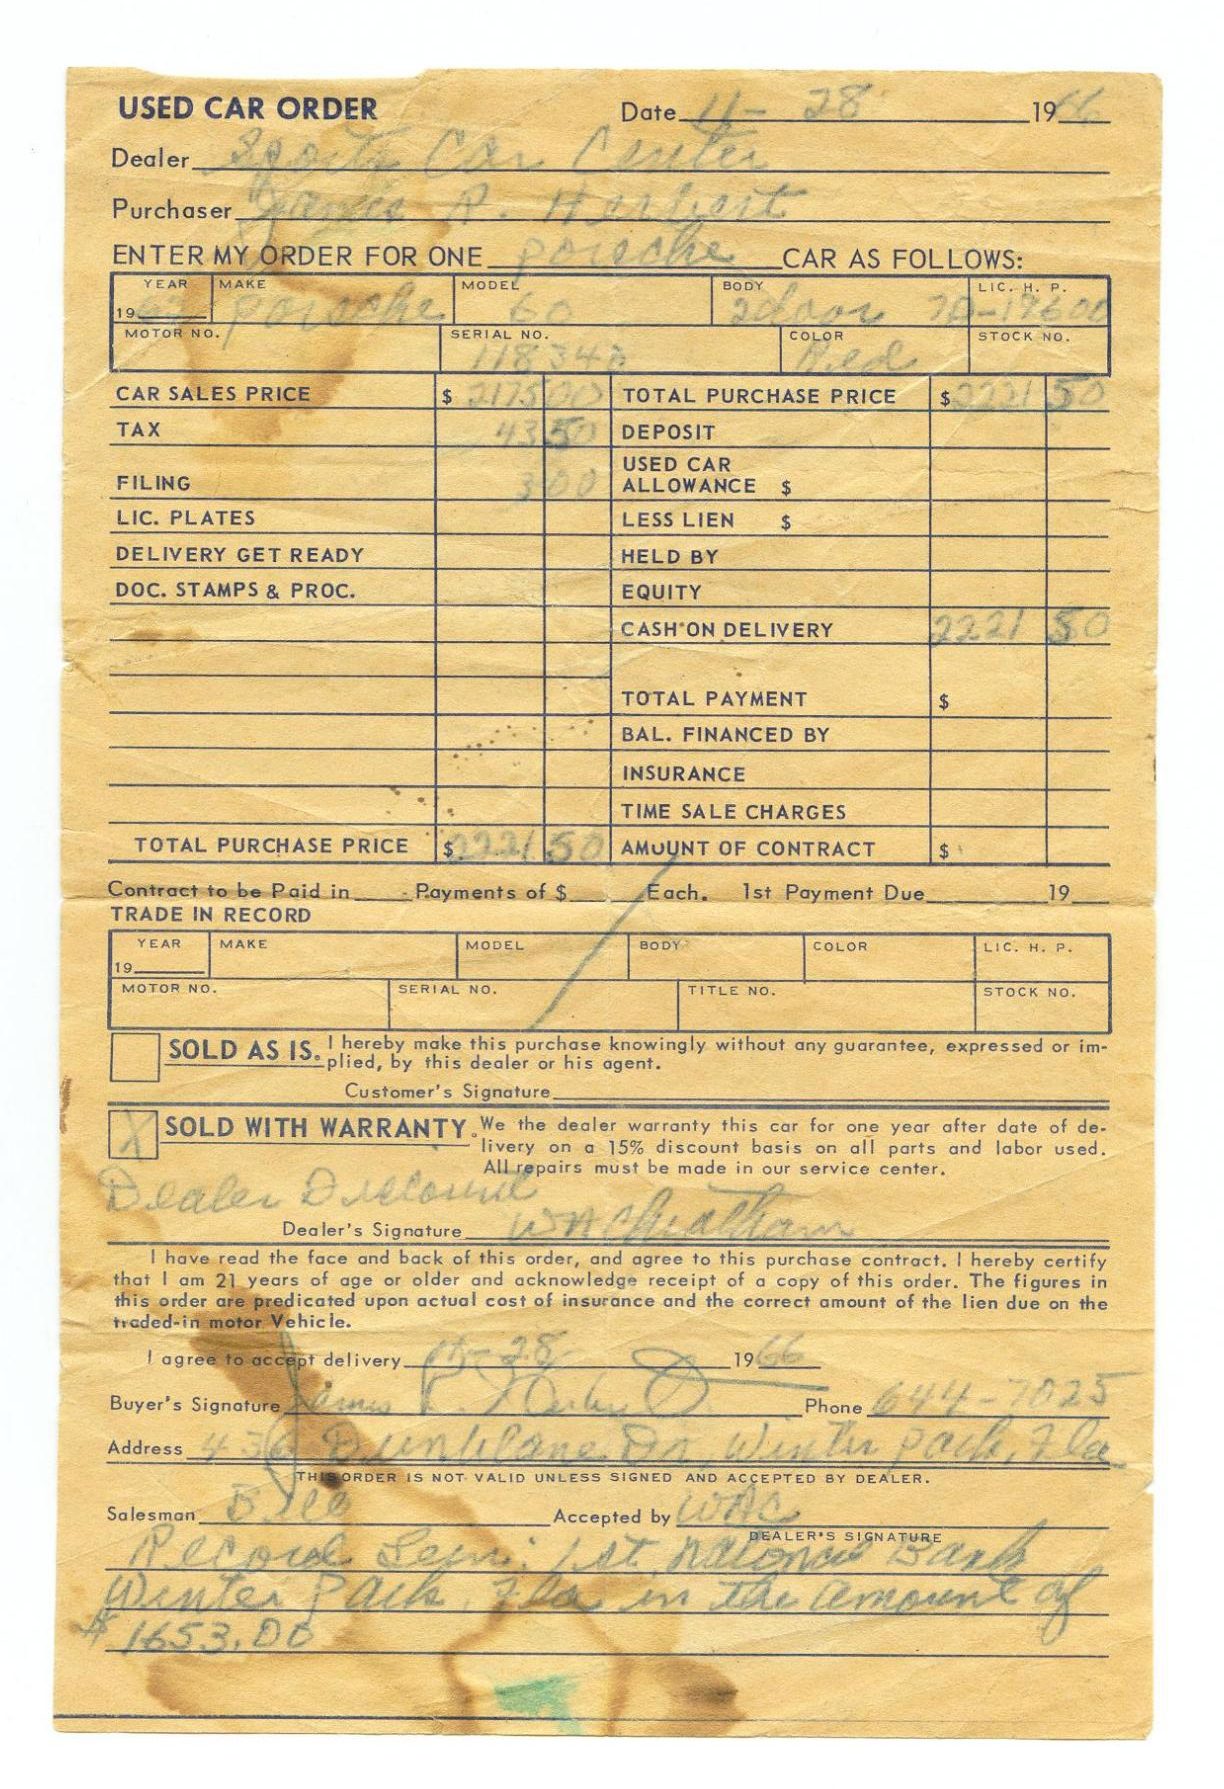 USED CAR ORDER Date 11- 28 1966
Dealer Sports Car Center
Purchaser James P. Herbert
ENTER MY ORDER FOR ONE Porsche CAR AS FOLLOWS:
YEAR MAKE MODEL BODY LIC. H. P.
19 Porsche 60 2door 7D-19600
MOTOR NO. SERIAL NO. COLOR STOCK NO.
Red
CAR SALES PRICE $ 2175 00 TOTAL PURCHASE PRICE $ 2221 50
TAX 43 50 DEPOSIT
USED CAR
FILING 3 00 ALLOWANCE $
LIC. PLATES LESS LIEN $
DELIVERY GET READY HELD BY
DOC. STAMPS & PROC. EQUITY
CASH ON DELIVERY 2221 50
TOTAL PAYMENT $
BAL. FINANCED BY
INSURANCE
TIME SALE CHARGES
TOTAL PURCHASE PRICE $ 2221 50 AMOUNT OF CONTRACT $
Contract to be Paid in Payments of $ Each. 1st Payment Due 19
TRADE IN RECORD
YEAR MAKE MODEL BODY COLOR LIC. H. P.
19
MOTOR NO. SERIAL NO. TITLE NO. STOCK NO.
SOLD AS IS. I hereby make this purchase knowingly without any guarantee, expressed or im-
plied, by this dealer or his agent.
Customer's Signature
X SOLD WITH WARRANTY. We the dealer warranty this car for one year after date of de-
livery on a 15% discount basis on all parts and labor used.
All repairs must be made in our service center.
Dealer Discount
Dealer's Signature WACheatham
I have read the face and back of this order, and agree to this purchase contract. I hereby certify
that I am 21 years of age or older and acknowledge receipt of a copy of this order. The figures in
this order are predicated upon actual cost of insurance and the correct amount of the lien due on the
traded-in motor Vehicle.
I agree to accept delivery 11-28- 1966
Buyer's Signature James P. Herbert Phone 644-7025
Address 436 Dunblane Dr, Winter Park, Fla
THIS ORDER IS NOT VALID UNLESS SIGNED AND ACCEPTED BY DEALER.
Salesman Bill Accepted by WAC
DEALER'S SIGNATURE
Record Lein: 1st National Bank
Winter Park, Fla in the amount of
$1653.00